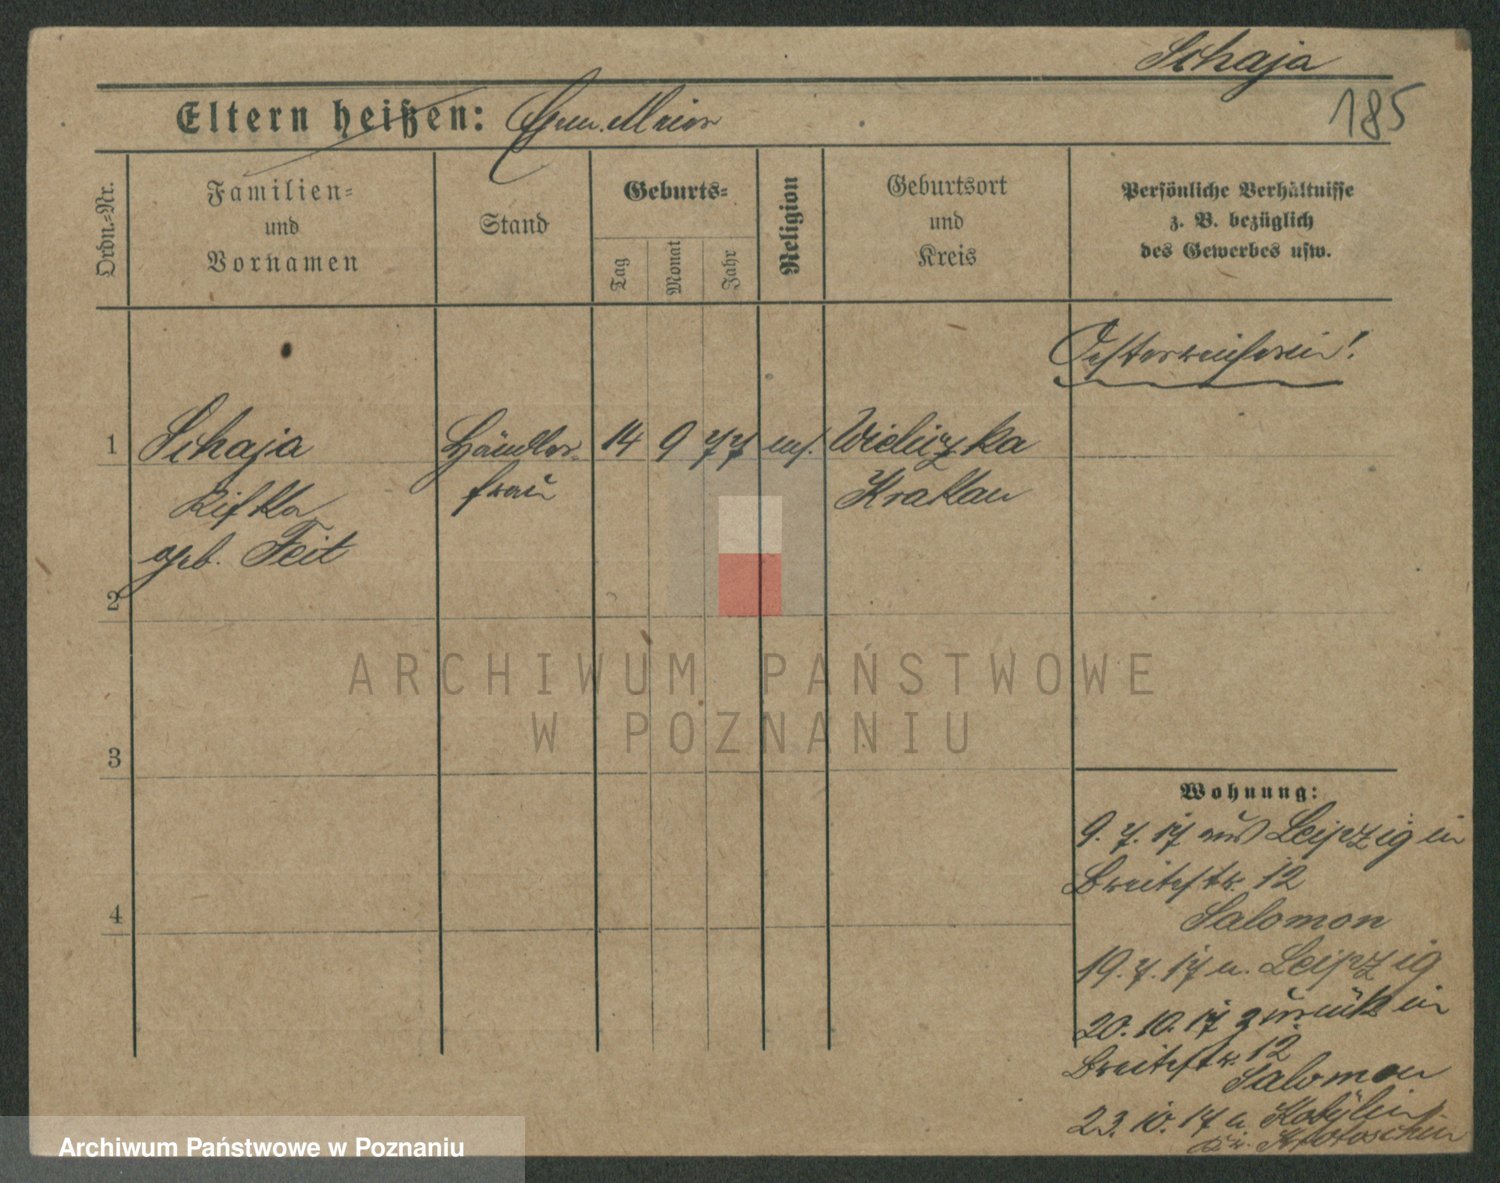 Schaja
185
Eltern heißen: Ehem. Meier
Ordn.-Nr.
Familien-
und
Vornamen
Stand
Geburts-
Tag
Monat
Jahr
Religion
Geburtsort
und
Kreis
Persönliche Verhältnisse
z. B. bezüglich
des Gewerbes usw.
Oesterreicherin!
1 Schaja Händler- 14 9 77 Wieliczka
Rifka frau Krakau
geb. Feit
2
3
4
ARCHIWUM PAŃSTWOWE
W POZNANIU
Wohnung:
9.7.17 aus Leipzig in
Breitestr. 12
Salomon
19.7.17 n. Leipzig
20.10.17 zurück in
Breitestr. 12
Salomon
23.10.17 n. Kobylin
Kr. Krotoschin
Archiwum Państwowe w Poznaniu